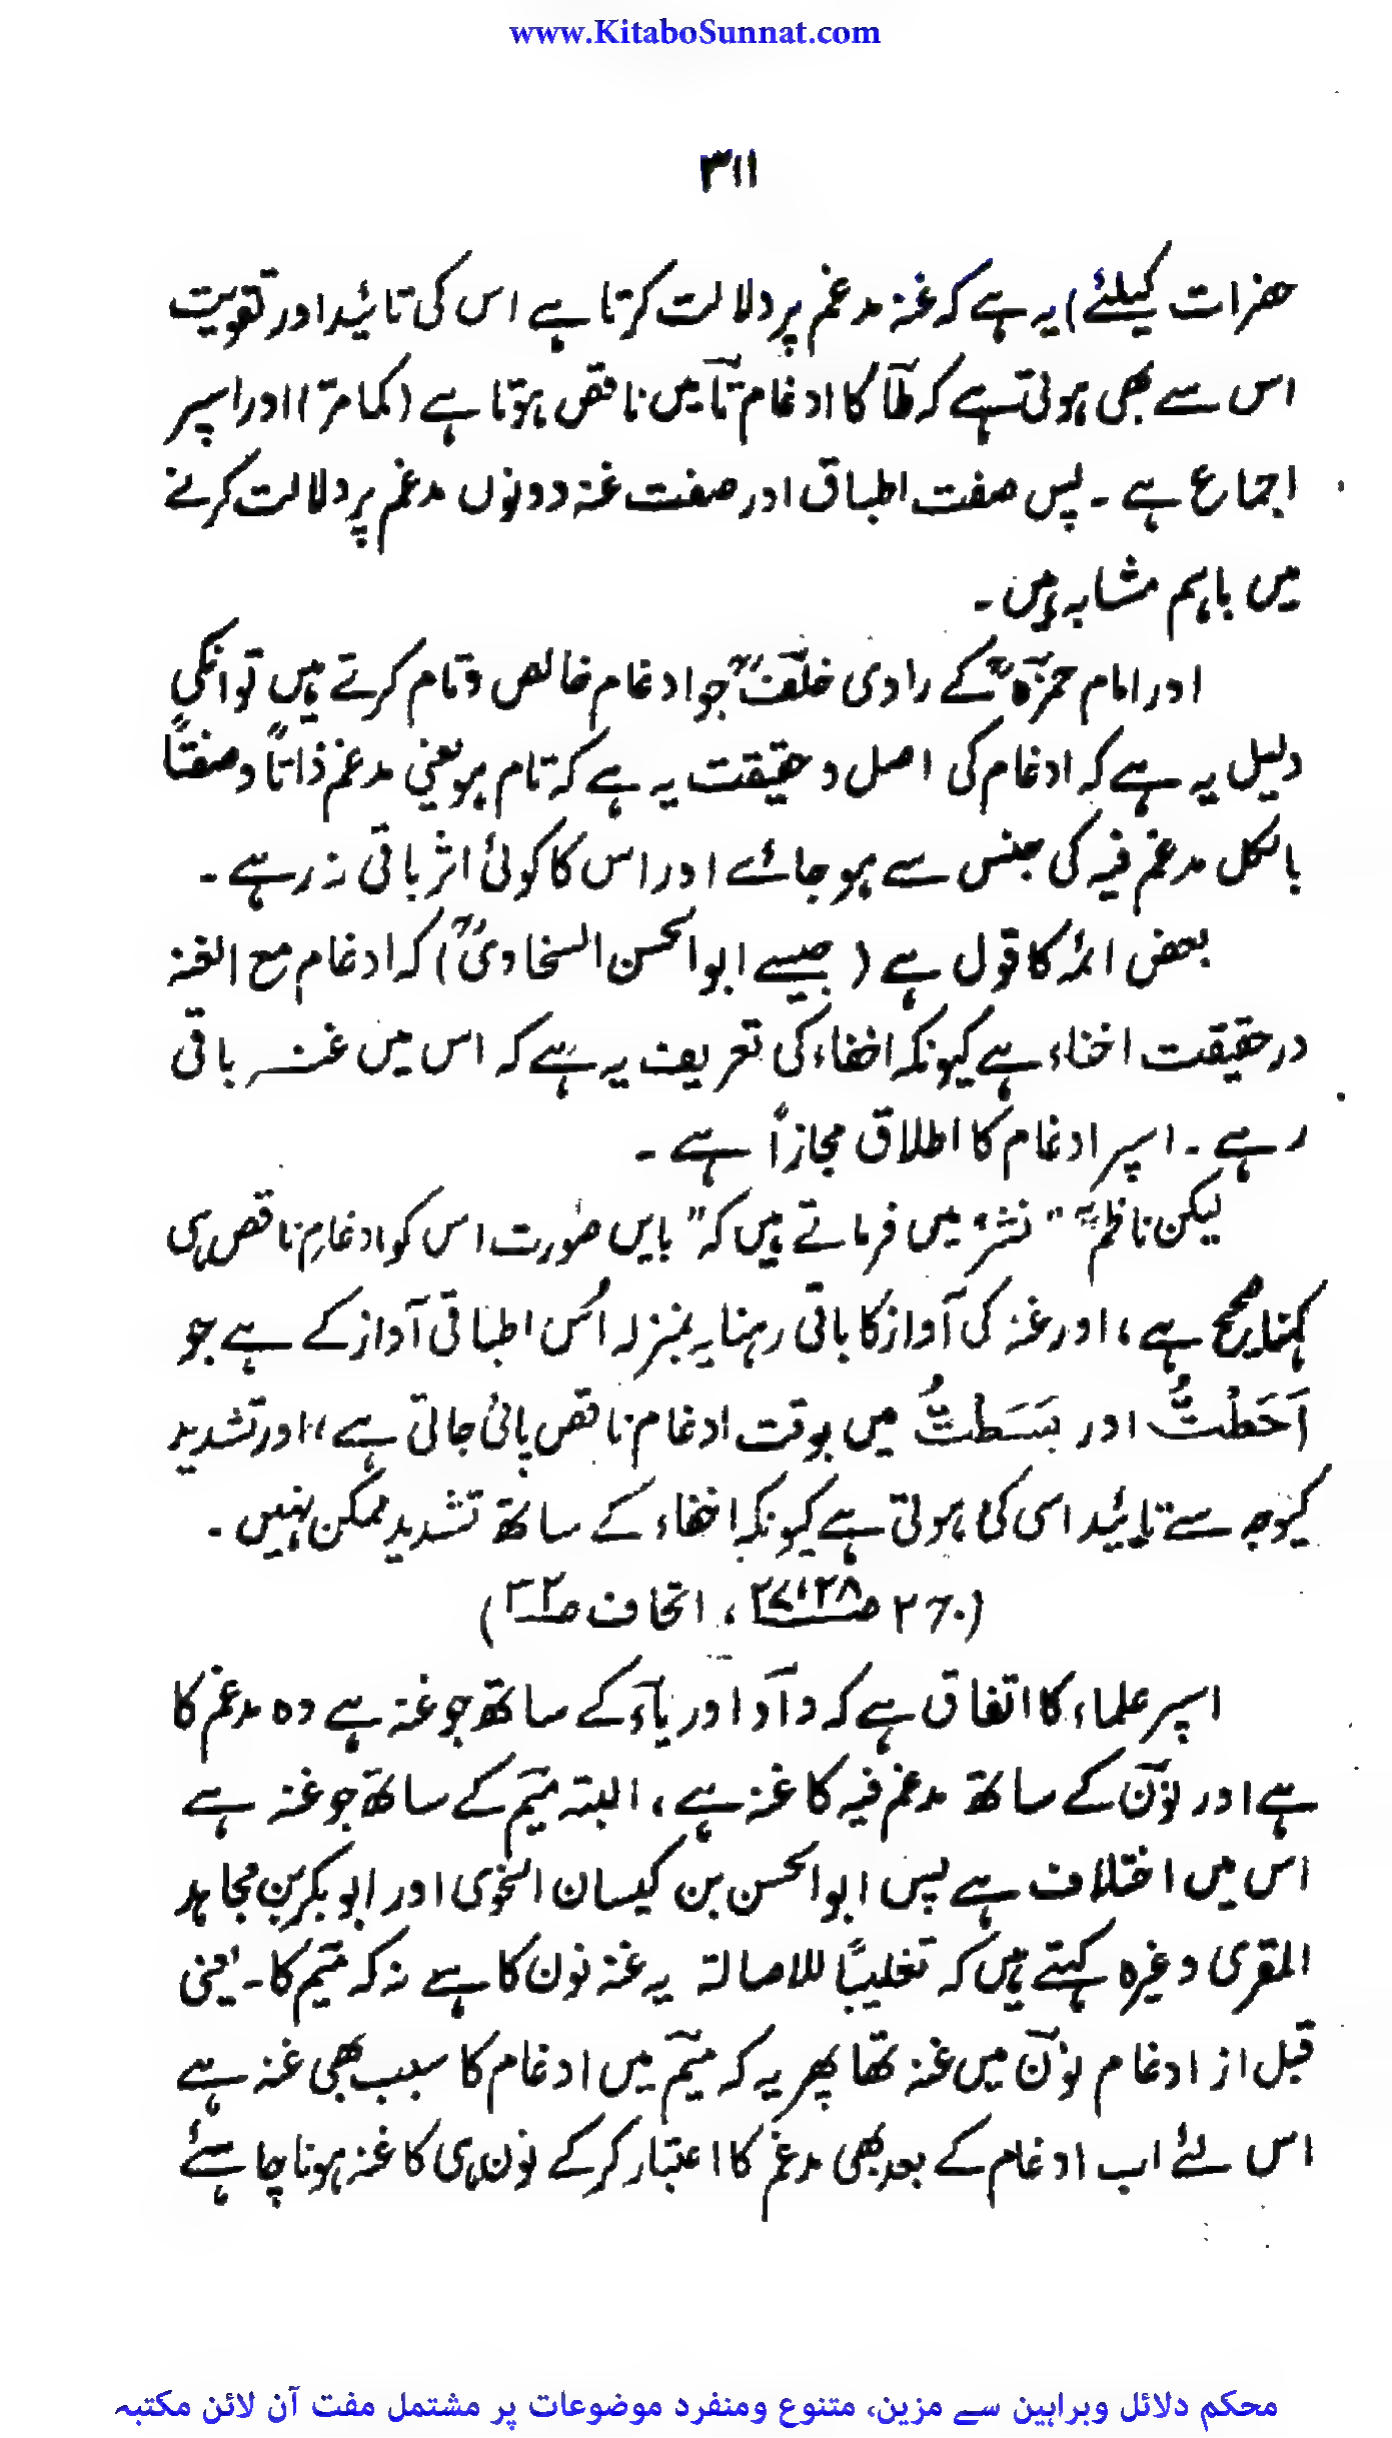 www.KitaboSunnat.com
۳۱۱
حضرات کیلئے) یہ ہے کہ غنہ مدغم پر دلالت کرتا ہے اس کی تائید اور تقویت
اس سے بھی ہوتی ہے کہ طآ کا ادغام تآ میں ناقص ہوتا ہے (کما مرّ) اور اسپر
اجماع ہے ۔ پس صفت اطباق اور صفت غنہ دونوں مدغم پر دلالت کرنے
میں باہم مشابہ ہیں ۔
اور امام حمزہؒ کے راوی خلفؒ جو ادغام خالص و تام کرتے ہیں تو انکی
دلیل یہ ہے کہ ادغام کی اصل و حقیقت یہ ہے کہ تام ہو یعنی مدغم ذاتاً و صفتاً
بالکل مدغم فیہ کی جنس سے ہو جائے اور اس کا کوئی اثر باقی نہ رہے ۔
بعض ائمہ کا قول ہے (جیسے ابو الحسن السخاویؒ) کہ ادغام مع الغنہ
درحقیقت اخفاء ہے کیونکہ اخفاء کی تعریف یہ ہے کہ اس میں غنہ باقی
رہے ۔ اسپر ادغام کا اطلاق مجازاً ہے ۔
لیکن ناظمؒ "نشر" میں فرماتے ہیں کہ "بایں صورت اس کو ادغامِ ناقص ہی
کہنا صحیح ہے ، اور غنہ کی آواز کا باقی رہنا یہ بمنزلہ اُس اطباقی آواز کے ہے جو
اَحَطْتُّ اور بَسَطْتَّ میں بوقت ادغام ناقص پائی جاتی ہے ، اور تشدید
کیوجہ سے تائید اسی کی ہوتی ہے کیونکہ اخفاء کے ساتھ تشدید ممکن نہیں ۔
ج۲ ص۲۷،۲۸ ، اتحاف ص۳۲)
اسپر علماء کا اتفاق ہے کہ وآو اور یآء کے ساتھ جو غنہ ہے وہ مدغم کا
ہے اور نوٓن کے ساتھ مدغم فیہ کا غنہ ہے ، البتہ میٓم کے ساتھ جو غنہ ہے
اس میں اختلاف ہے پس ابو الحسن بن کیسان النحوی اور ابو بکر بن مجاہد
المقری وغیرہ کہتے ہیں کہ تغلیباً للاصالۃ یہ غنہ نون کا ہے نہ کہ میٓم کا ۔ یعنی
قبل از ادغام نوٓن میں غنہ تھا پھر یہ کہ میٓم میں ادغام کا سبب بھی غنہ ہے
اس لئے اب ادغام کے بعد بھی مدغم کا اعتبار کر کے نون ہی کا غنہ ہونا چاہئے
محکم دلائل وبراہین سے مزین، متنوع ومنفرد موضوعات پر مشتمل مفت آن لائن مکتبہ